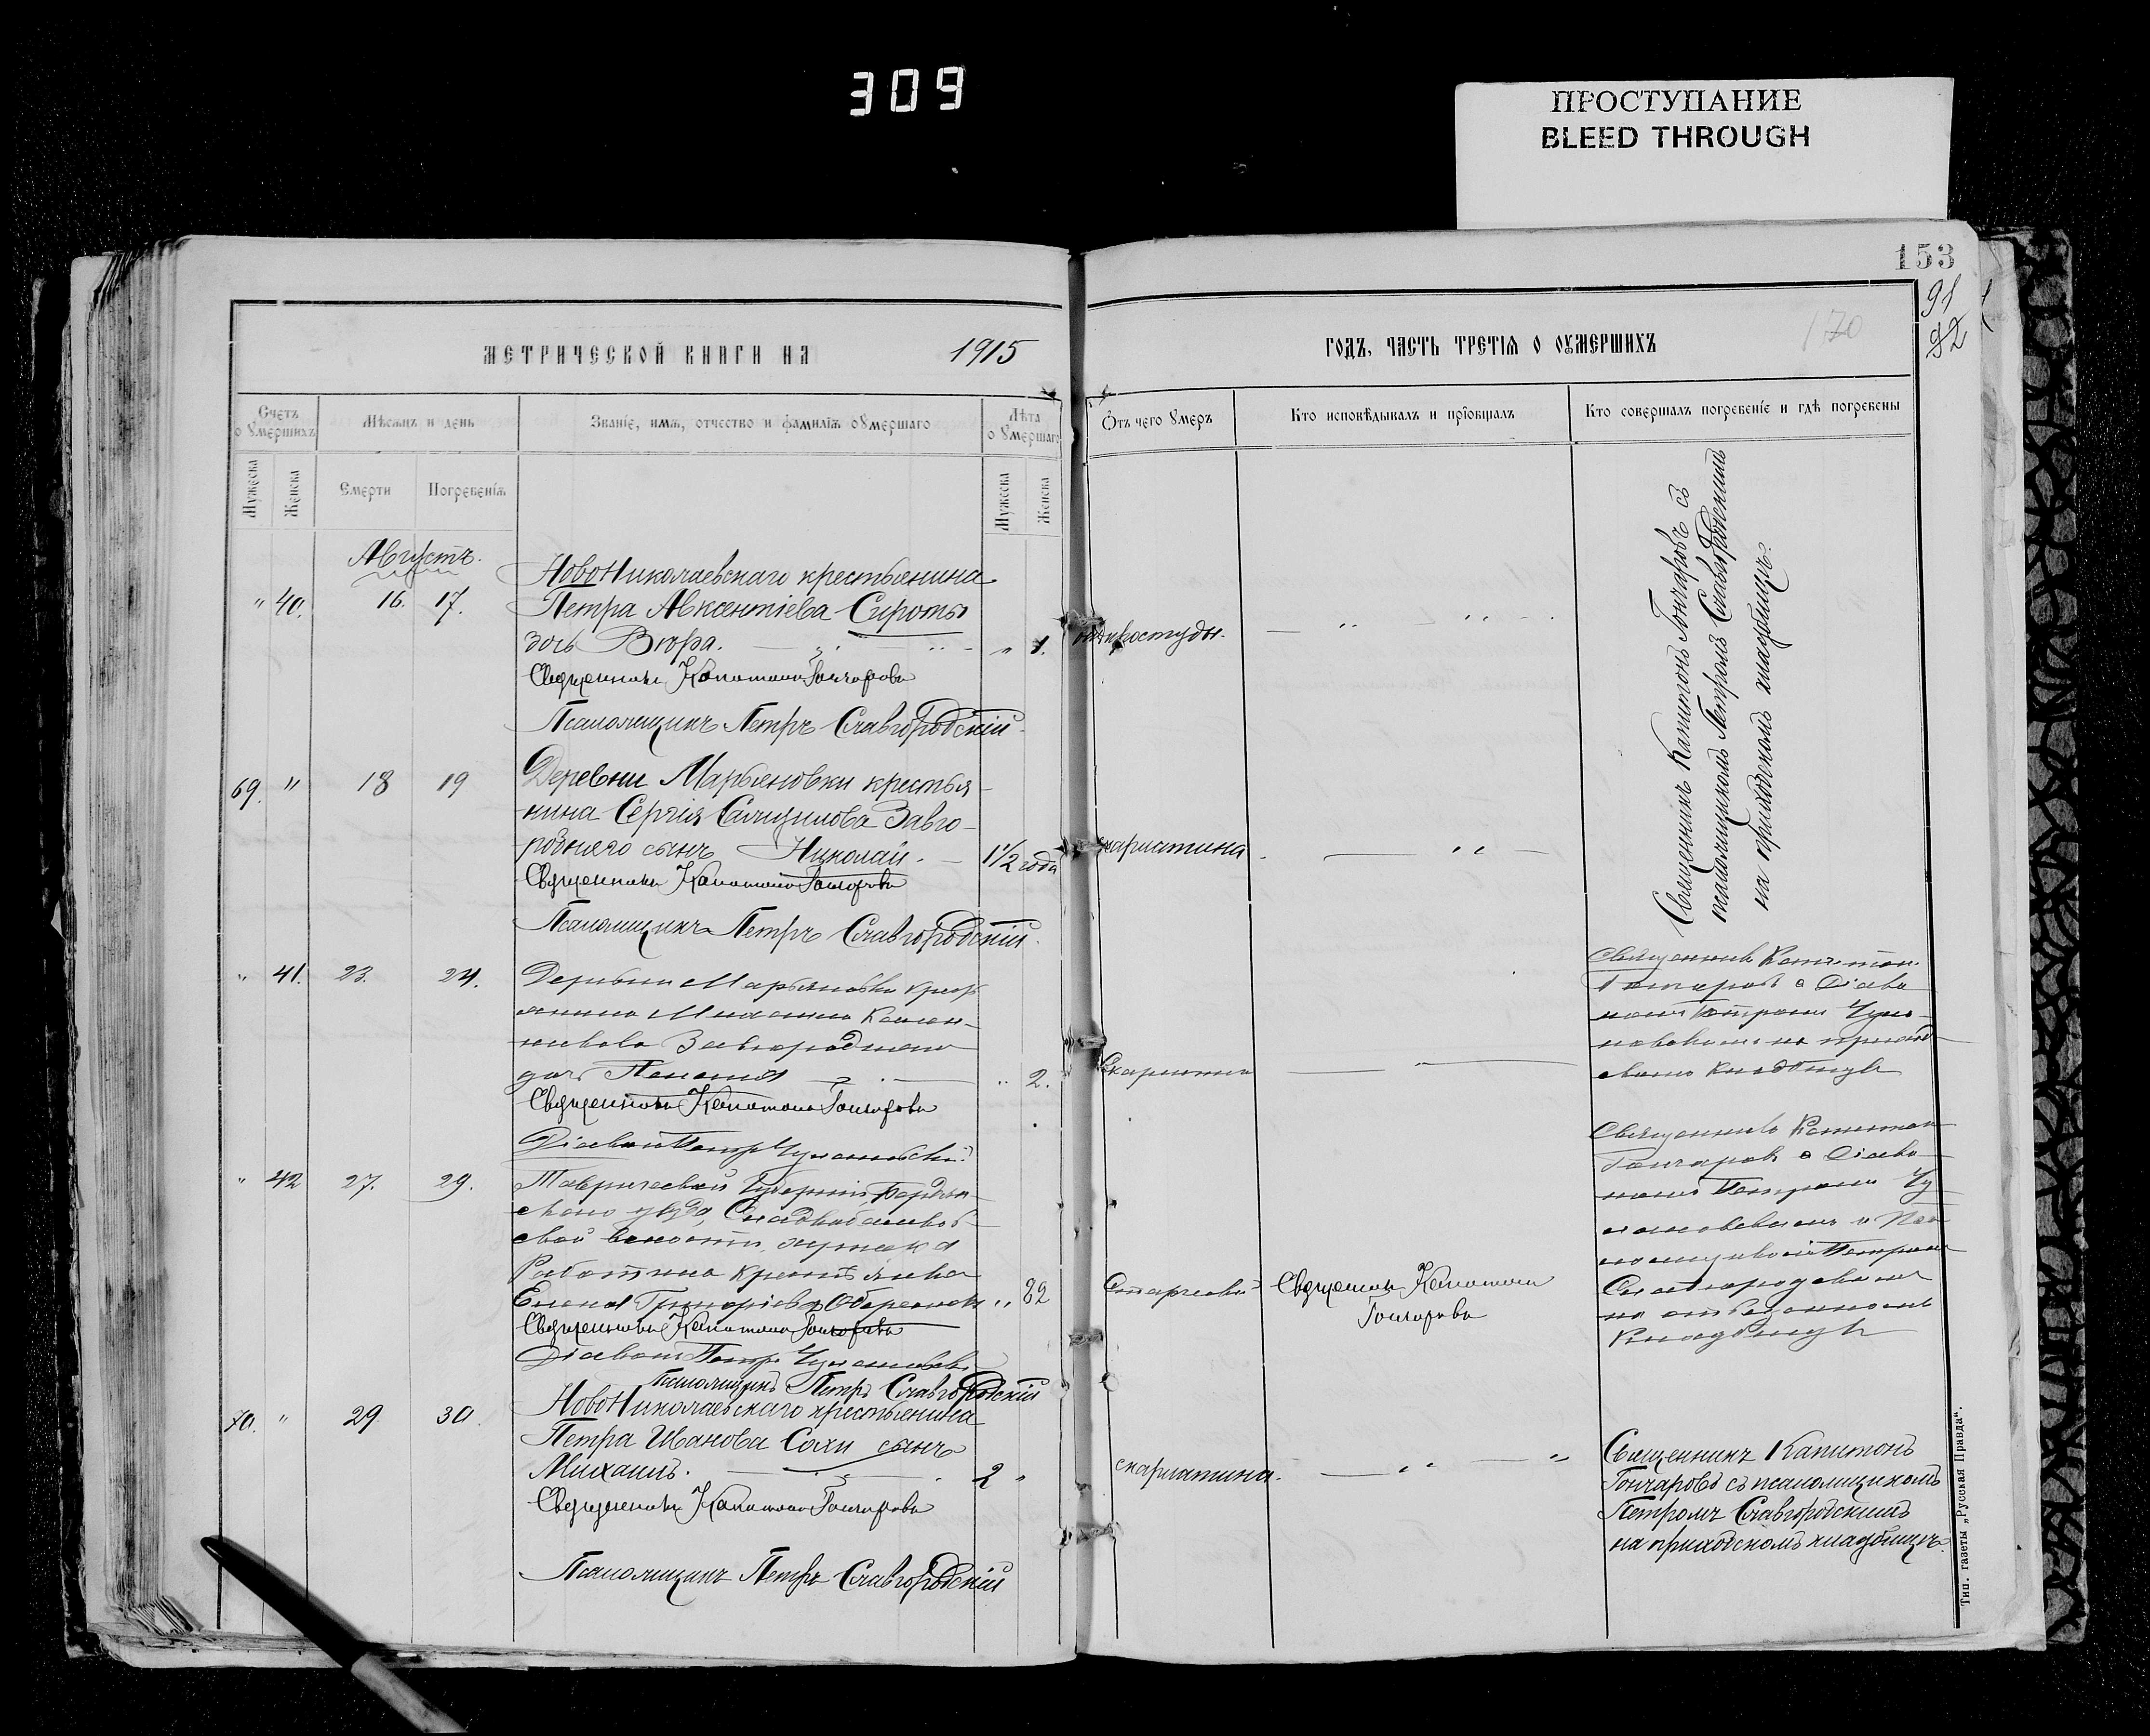 309
ПРОСТУПАНИЕ
BLEED THROUGH
153
91
82
170
МЕТРИЧЕСКОЙ КНИГИ НА 1915
ГОДЪ, ЧАСТЬ ТРЕТІЯ О ОУМЕРШИХЪ
Счетъ оумершихъ
Мѣсяцъ и день
Званіе, имя, отчество и фамилія оумершаго
Лѣта оумершаго
Отъ чего умеръ
Кто исповѣдывалъ и пріобщалъ
Кто совершалъ погребеніе и гдѣ погребены
Мужеска
Женска
Смерти
Погребенія
Мужеска
Женска
Августъ.
НовоНиколаевскаго крестьянина
" 40. 16. 17. Петра Авксентіева Сироты
дочь Вѣра. " 1. отъ простуды.
Священникъ Капитонъ Гончаровъ
Псаломщикъ Петръ Славгородскій
Священникъ Капитонъ Гончаровъ съ
псаломщикомъ Петромъ Славгородскимъ
на приходскомъ кладбищѣ.
69. " 18 19 Деревни Марьяновки крестья-
нина Сергія Завго-
роднего сынъ Николай. 1 1/2 года скарлатина
Священникъ Капитонъ Гончаровъ
Псаломщикъ Петръ Славгородскій
" 41. 23. 24. Деревни Марьяновки крест
янина Михаила
Завгороднаго
дочь " 2. Скарлатина
Священникъ Капитонъ Гончаровъ
Діаконъ Петръ
Священникъ Капитонъ
Гончаровъ с Діако
номъ Петромъ
на приход
скомъ кладбищѣ
" 42 27. 29. Таврической Губерніи, Бердян-
скаго уѣзда,
волости, хутора
крестьянка
Елена Григоріева " 82 Старческій
Священникъ Капитонъ
Гончаровъ
Священникъ Капитонъ Гончаровъ
Діаконъ Петръ
Псаломщикъ Петръ Славгородскій
Священникъ Капитон
Гончаровъ с Діако
номъ Петромъ
и Пса
ломщикомъ Петромъ
Славгородскимъ
на
Кладбищѣ
НовоНиколаевскаго крестьянина
70. " 29. 30. Петра Иванова Сохи сынъ
Михаилъ. 2 " скарлатина.
Священникъ Капитонъ Гончаровъ
Псаломщикъ Петръ Славгородскій
Священникъ Капитонъ
Гончаровъ съ псаломщикомъ
Петромъ Славгородскимъ
на приходскомъ кладбищѣ.
Тип. газеты „Русская Правда“.